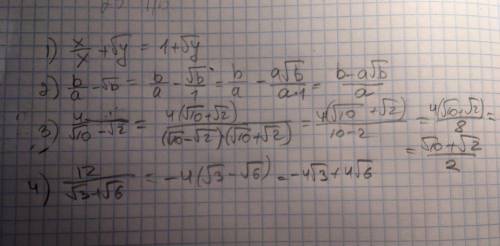 1) x/x + √y = 1 + √y
2) b/a - √b = b/a - √b/1 = b/a - a√b/a·1 = b-a√b/a
3) 4/√10 - √2 = 4(√10+√2)/(√10-√2)(√10+√2) = 4(√10+√2)/10-2 = 4(√10+√2)/8 =
= √10+√2/2
4) 12/√3+√6 = -4(√3-√6) = -4√3+4√6